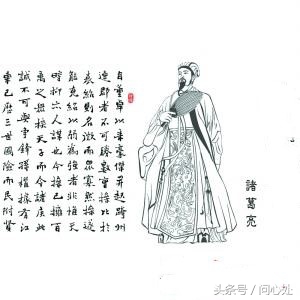 自董卓以來豪傑并起跨州
連郡者不可勝數曹操比於
袁紹則名微而眾寡然操遂
能克紹以弱為強者非惟天
時抑亦人謀也今操已擁百
萬之眾挾天子而令諸侯此
誠不可與爭鋒孫權據有江
東已歷三世國險而民附賢
諸葛亮
头条号 / 问心处